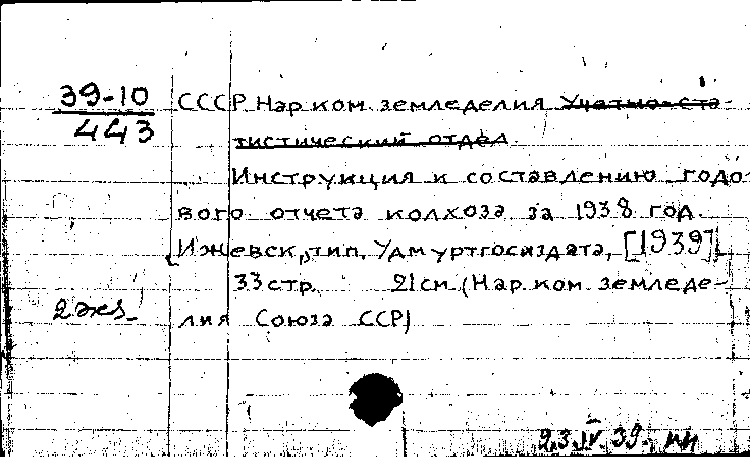 39-10
443
СССР Нар. ком. земледелия Учетно-ста-
тистический отдел.
Инструкция к составлению годо-
вого отчета колхоза за 1938 год.
Ижевск, тип. Удмуртгосиздата, [1939].
33 стр. 21 см (Нар. ком. земледе-
2 экз.
лия Союза ССР)
23.IV.39.